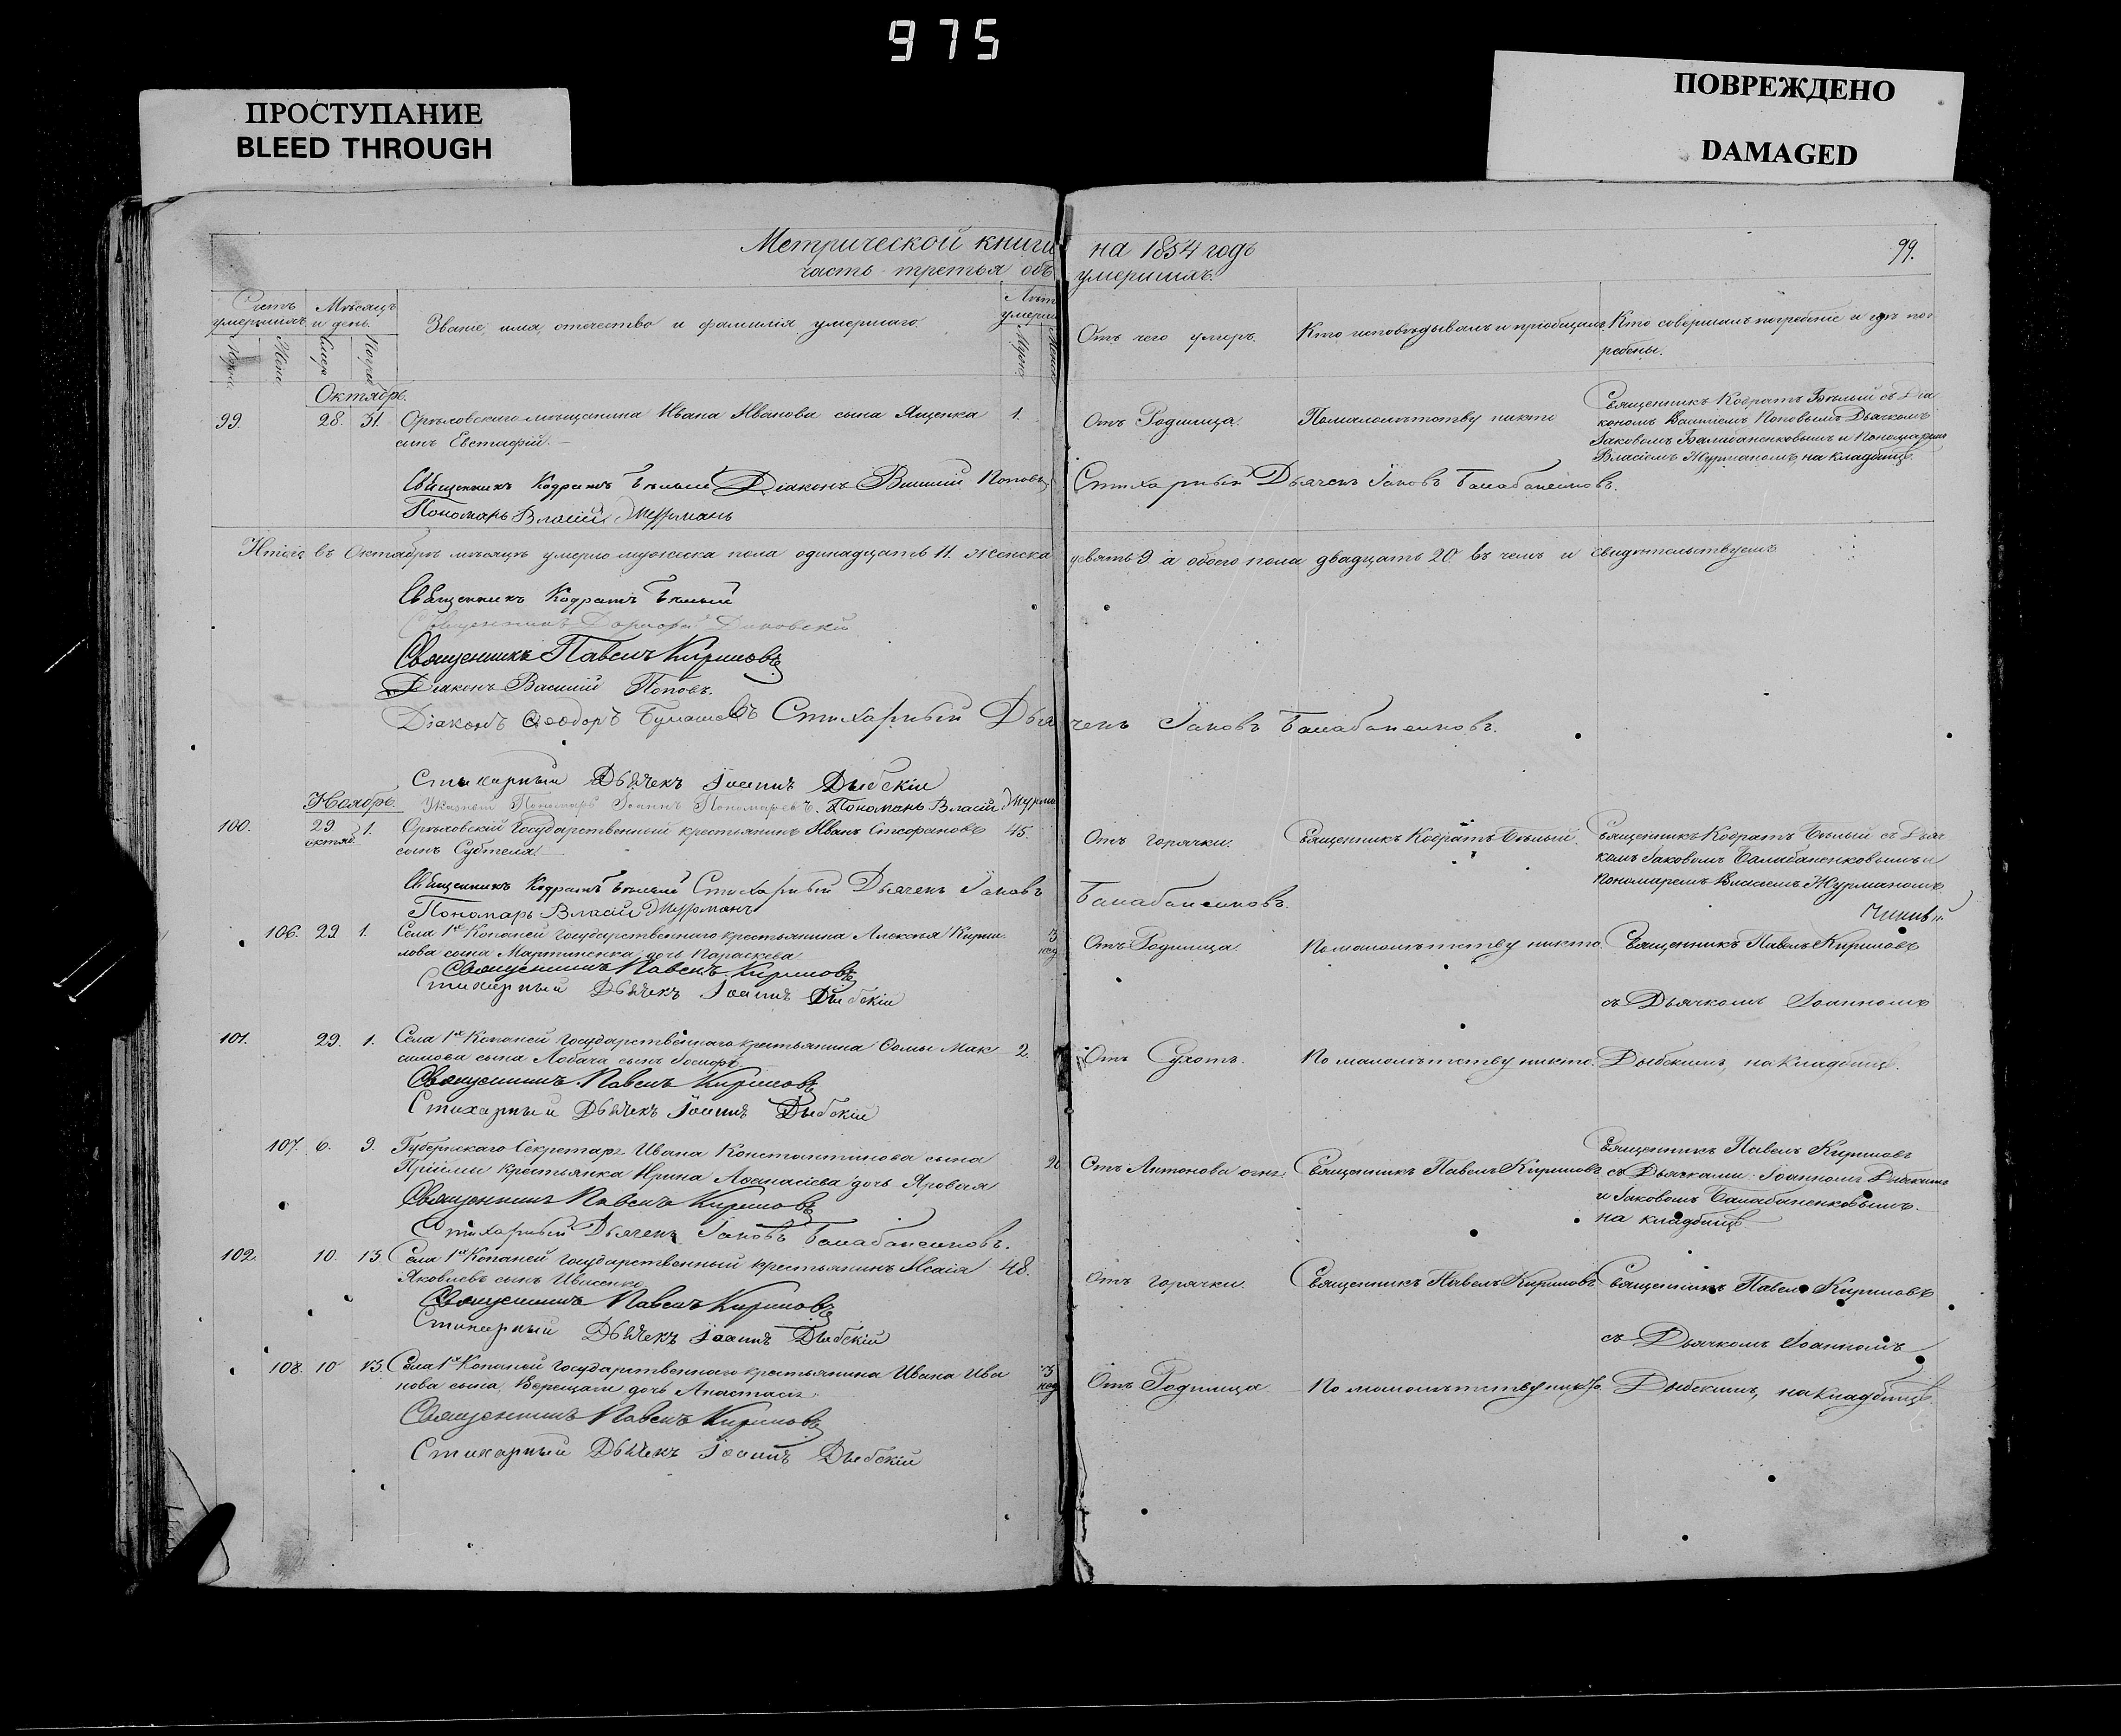 975
ПРОСТУПАНИЕ
BLEED THROUGH
ПОВРЕЖДЕНО
DAMAGED
Метрической книги на 1854 годъ
99.
часть третья объ умершихъ.
Счетъ умершихъ
Мѣсяцъ и день.
Званіе, имя, отечество и фамилія умершаго.
Лѣта умерш
Отъ чего умеръ.
Кто исповѣдывалъ и пріобщалъ.
Кто совершалъ погребеніе и гдѣ погребены.
Октябрь.
99. 28. 31. Орѣховскаго мѣщанина Ивана Иванова сына Яценка 1.
сынъ Евстафій.
Отъ Родимца.
По малолѣтству никто
Священникъ Кодратъ Бѣлый съ Діа
кономъ Василіемъ Поповымъ Дьячкомъ
Іаковомъ Балабаненковымъ и Пономаремъ
Власіемъ Журманомъ, на кладбищѣ.
Священникъ Кодратъ Бѣлый Діаконъ Василій Поповъ Стихарный Дьячекъ Іаковъ Балабаненковъ.
Пономарь Власій Журманъ
Итого въ Октябрѣ мѣсяцѣ умерло мужеска пола одинадцать 11. Женска девять 9 а обоего пола двадцать 20. въ чемъ и свидѣтельствуемъ
Священникъ Кодратъ Бѣлый
Священникъ
Священникъ Павелъ Кириловъ
Діаконъ Василій Поповъ.
Діаконъ Ѳеодоръ Стихарный Дьячекъ Іаковъ Балабаненковъ.
Стихарный Дьячекъ Іоаннъ Дыбскій
Ноябрь.
Указный Пономарь Іоаннъ Пономаревъ. Пономарь Власій Журман
100. 29 октяб. 1. Орѣховскій Государственный крестьянинъ Иванъ Стефановъ 45.
сынъ Субтеля.
Отъ горячки.
Священникъ Кодратъ Бѣлый.
Священникъ Кодратъ Бѣлый съ Дьяч
комъ Іаковомъ Балабаненковымъ и
пономаремъ Власіемъ Журманомъ
Священникъ Кодратъ Бѣлый Стихарный Дьячекъ Іаковъ Балабаненковъ.
Пономарь Власій Журманъ
106. 29 1. Села 1хъ Копаней государственнаго крестьянина Алексѣя Кири 3 нед
лова сына Мартиненка дочь Параскева
Отъ Родимца.
По малолѣтству никто.
Священникъ Павелъ Кириловъ
Священникъ Павелъ Кириловъ
Стихарный Дьячекъ Іоаннъ Дыбскій
съ Дьячкомъ Іоанномъ
101. 29. 1. Села 1хъ Копаней Государственнаго крестьянина Ѳомы Мак 2.
симова сына Лобача сынъ
Отъ Сухотъ.
По малолѣтству никто.
Дыбскимъ, на кладбищѣ.
Священникъ Павелъ Кириловъ
Стихарный Дьячекъ Іоаннъ Дыбскій
107. 6. 9. Губернскаго Секретаря Ивана Константинова сына 20
Пріймы крестьянка Ирина Аѳанасіева дочь Яровая
Отъ Антонова огня.
Священникъ Павелъ Кириловъ
Священникъ Павелъ Кириловъ
съ Дьячками: Іоанномъ Дыбскимъ
и Іаковомъ Балабаненковымъ.
на кладбищѣ
Священникъ Павелъ Кириловъ
Стихарный Дьячекъ Іаковъ Балабаненковъ.
102. 10. 13. Села 1хъ Копаней Государственный крестьянинъ Исаія 48.
Яковлевъ сынъ Ивсенко
Отъ горячки.
Священникъ Павелъ Кириловъ
Священникъ Павелъ Кириловъ
Священникъ Павелъ Кириловъ
Стихарный Дьячекъ Іоаннъ Дыбскій
съ Дьячкомъ Іоанномъ
108. 10 13. Села 1хъ Копаней Государственнаго крестьянина Ивана Ива 3 нед
нова сына, Верещаги дочь Анастасія.
Отъ Родимца
По малолѣтству никто.
Дыбскимъ, на кладбищѣ.
Священникъ Павелъ Кириловъ
Стихарный Дьячекъ Іоаннъ Дыбскій